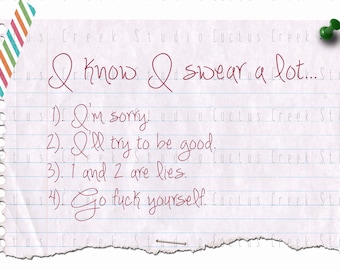 I know I swear a lot...
1). I'm sorry.
2). I'll try to be good.
3). 1 and 2 are lies.
4). Go fuck yourself.
Cactus Creek Studio